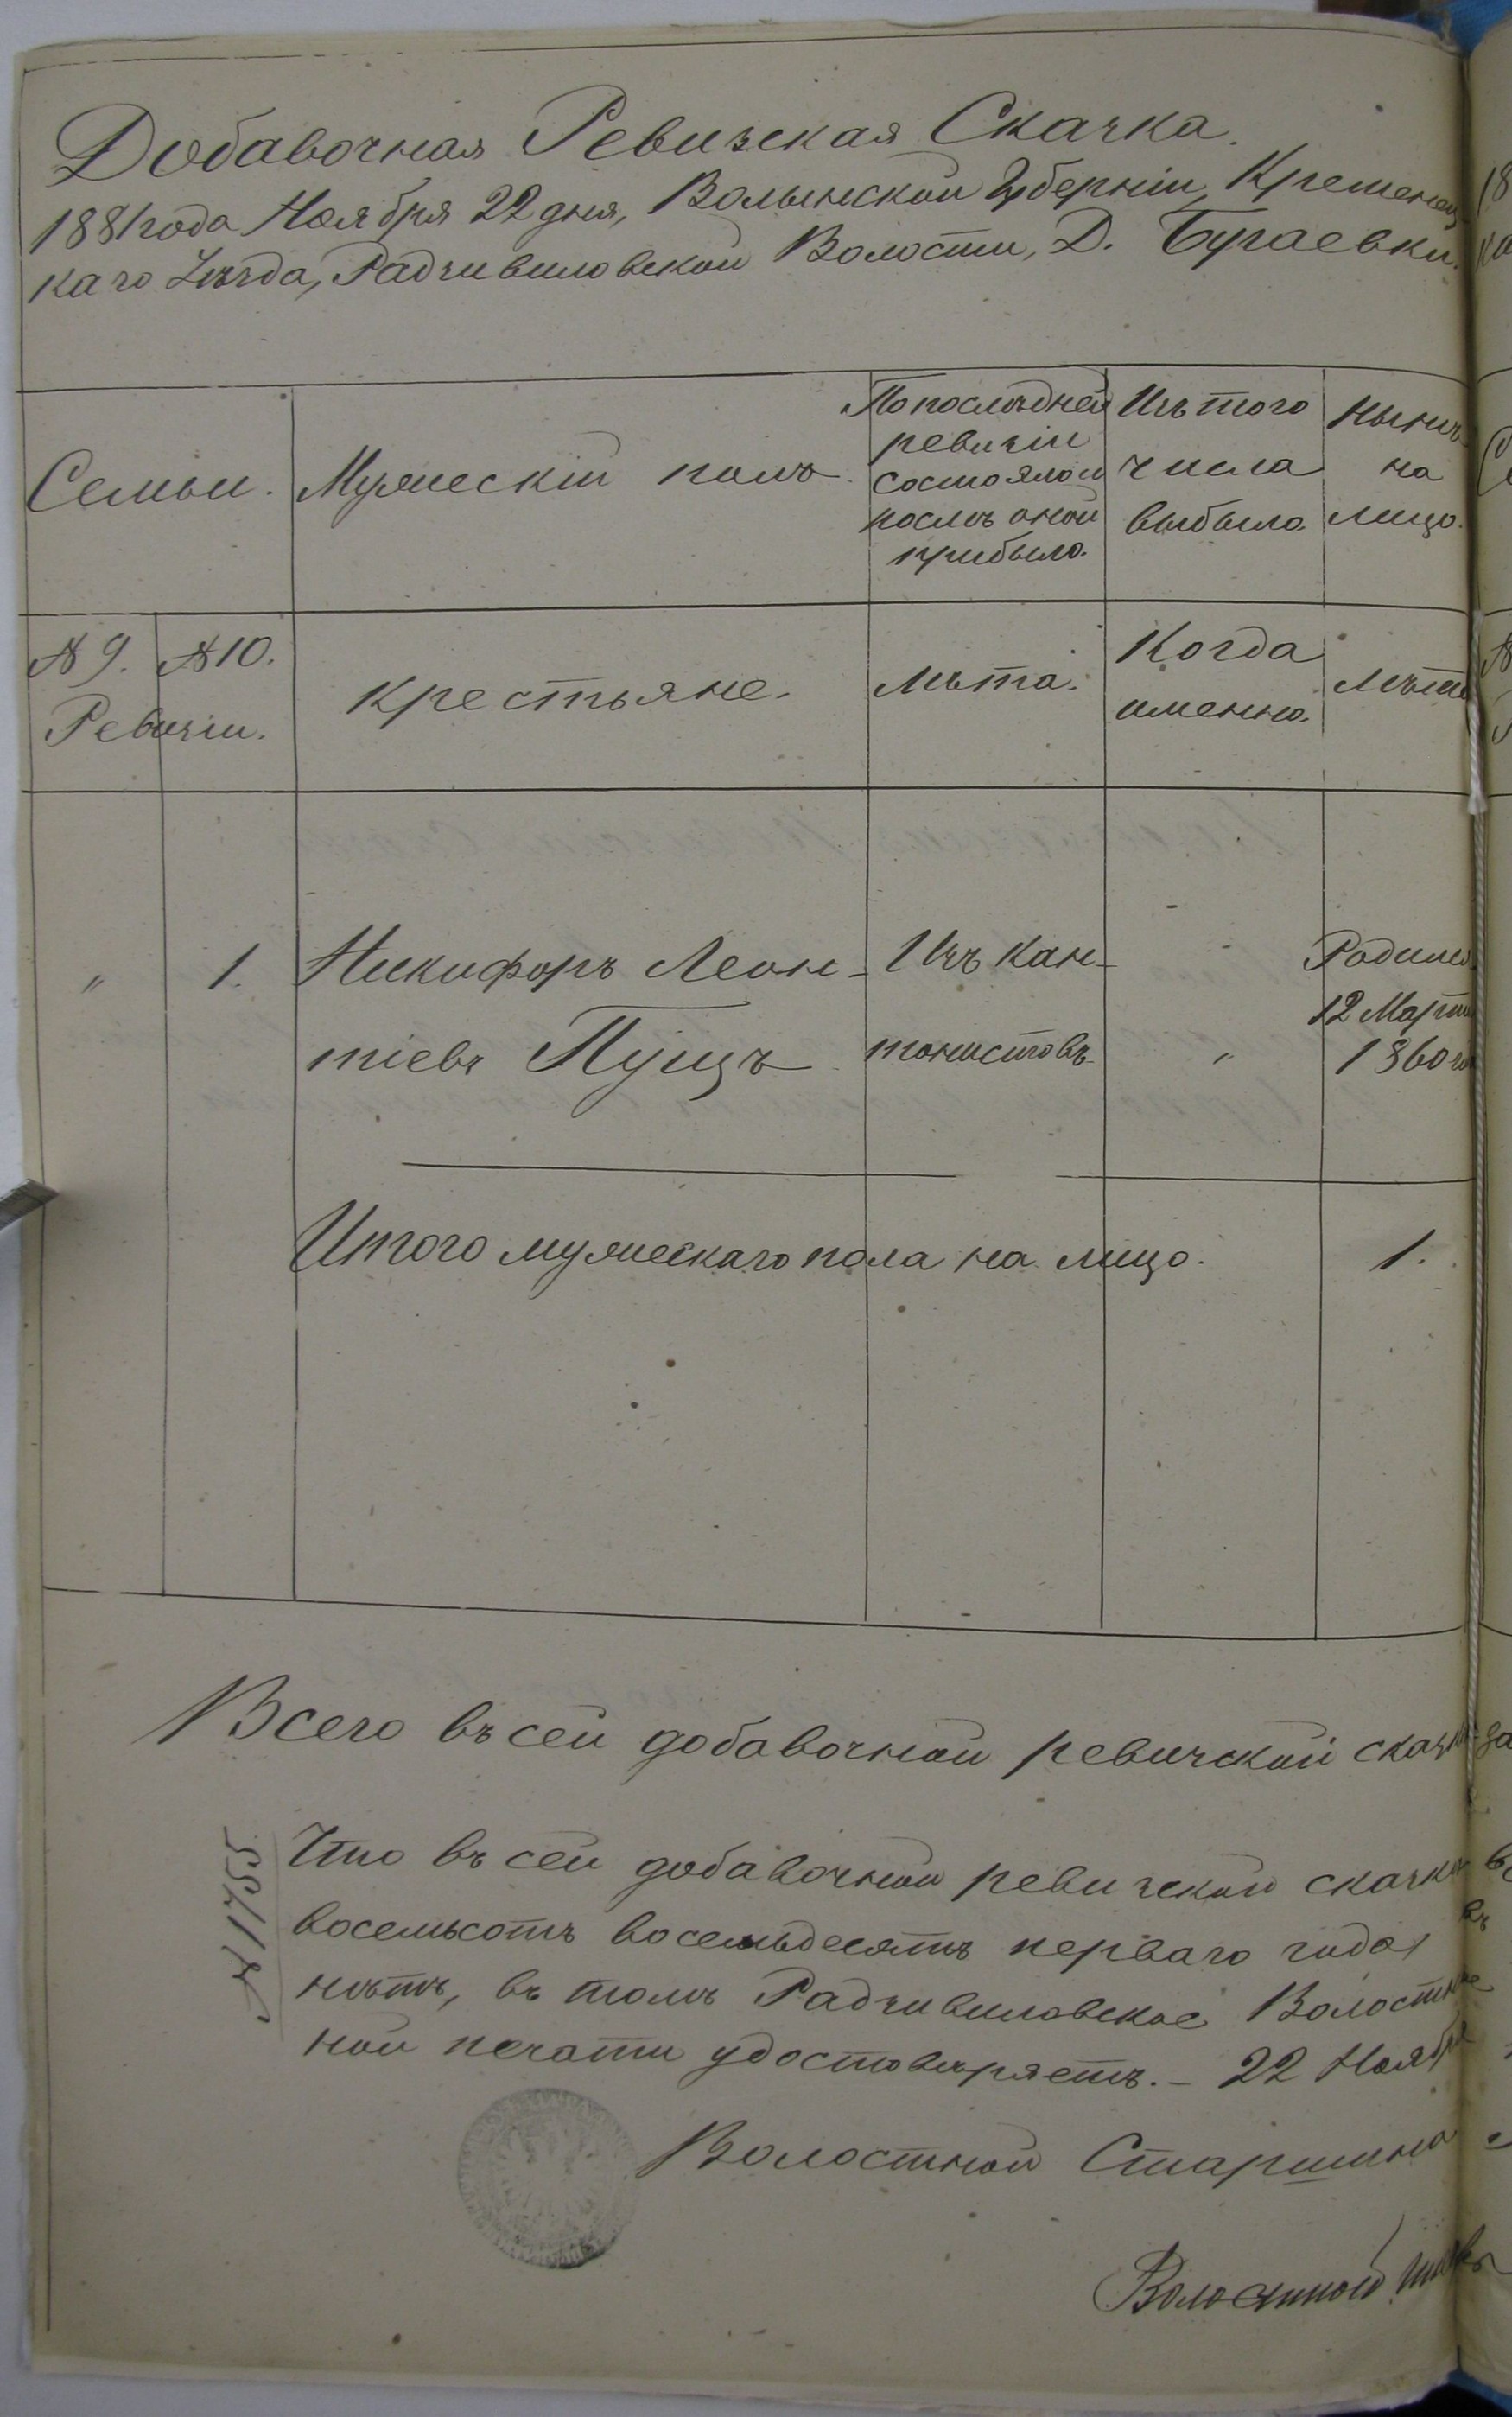 Добавочная Ревизская Сказка.
1881 года Ноября 22 дня, Волынской Губерніи, Кременец-
каго Уѣзда, Радзивиловской Волости, Д. Бугаевки.
Семьи.
Мужескій полъ.
По послѣдней
ревизіи
состояло и
послѣ оной
прибыло.
Изъ того
числа
выбыло.
Нынѣ
на
лицо.
№ 9. № 10.
Ревизіи.
Крестьяне.
Лѣта.
Когда
именно.
Лѣта
" 1. Никифоръ Леон- Изъ кан- Родился
12 Марта
тіевъ Пущъ тонистовъ " 1860 го
Итого мужескаго пола на лицо. 1.
Всего въ сей добавочной ревизской сказкѣ
Что въ сей добавочной ревизской сказкѣ
восемьсотъ восемьдесятъ перваго года
нѣтъ, въ томъ Радзивиловское Волостное
ной печати удостовѣряетъ. – 22 Ноября
Волостной Старшина
Волостной
№ 1755